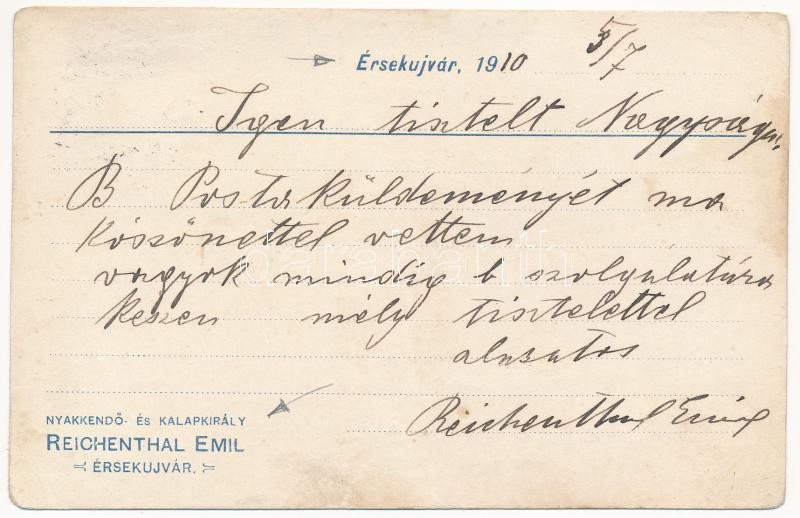 Érsekujvár, 1910 5/7
Igen tisztelt Nagysága,
B Posta küldeményét ma
köszönettel vettem
vagyok mindig b szolgálatára
keszen mély tisztelettel
alazatos
Reichenthal Emil
NYAKKENDŐ- ÉS KALAPKIRÁLY
REICHENTHAL EMIL
ÉRSEKUJVÁR.